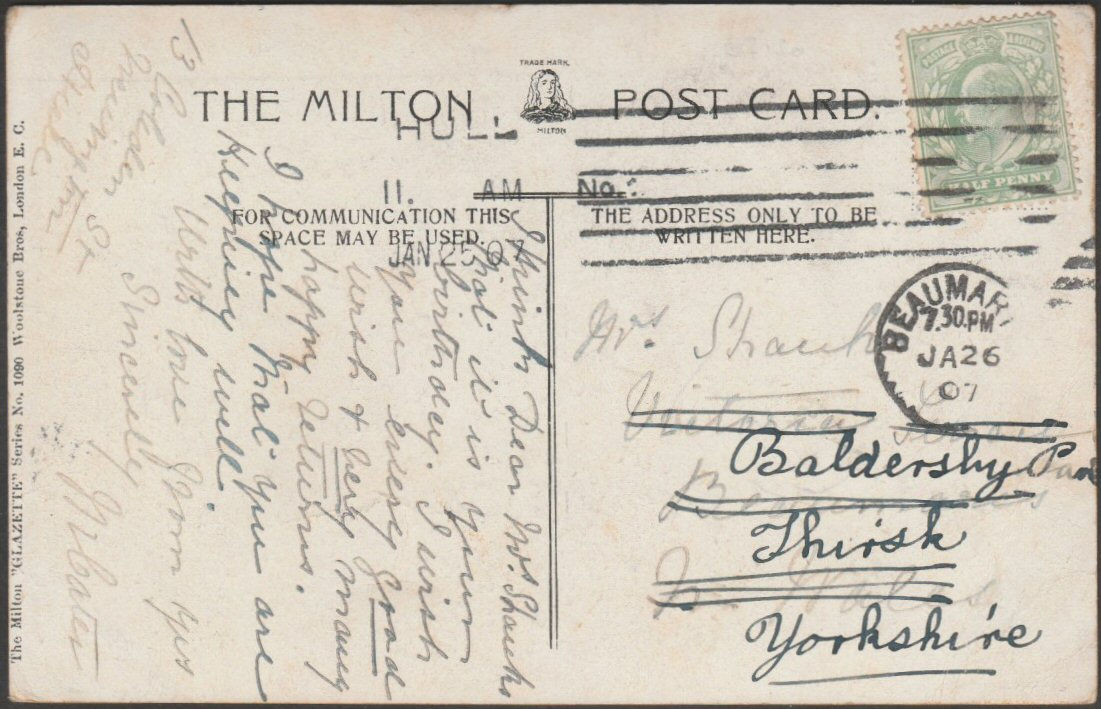 TRADE MARK
MILTON
THE MILTON POST CARD.
HULL
11. AM
JAN 25 07
No.
FOR COMMUNICATION THIS
SPACE MAY BE USED.
THE ADDRESS ONLY TO BE
WRITTEN HERE.
POSTAGE & REVENUE
HALF PENNY
BEAUMAR
7.30 PM
JA 26
07
13
St
I think Dear Mrs Shanks
that it is your
birthday. I wish
you every good
wish & very many
happy returns.
I hope that you are
keeping well.
With love from yrs
Sincerely
Mrs Shanks
Victoria
Beaumaris
N. Wales
Baldersby Park
Thirsk
Yorkshire
The Milton "GLAZETTE" Series No. 1090 Woolstone Bros, London E. C.